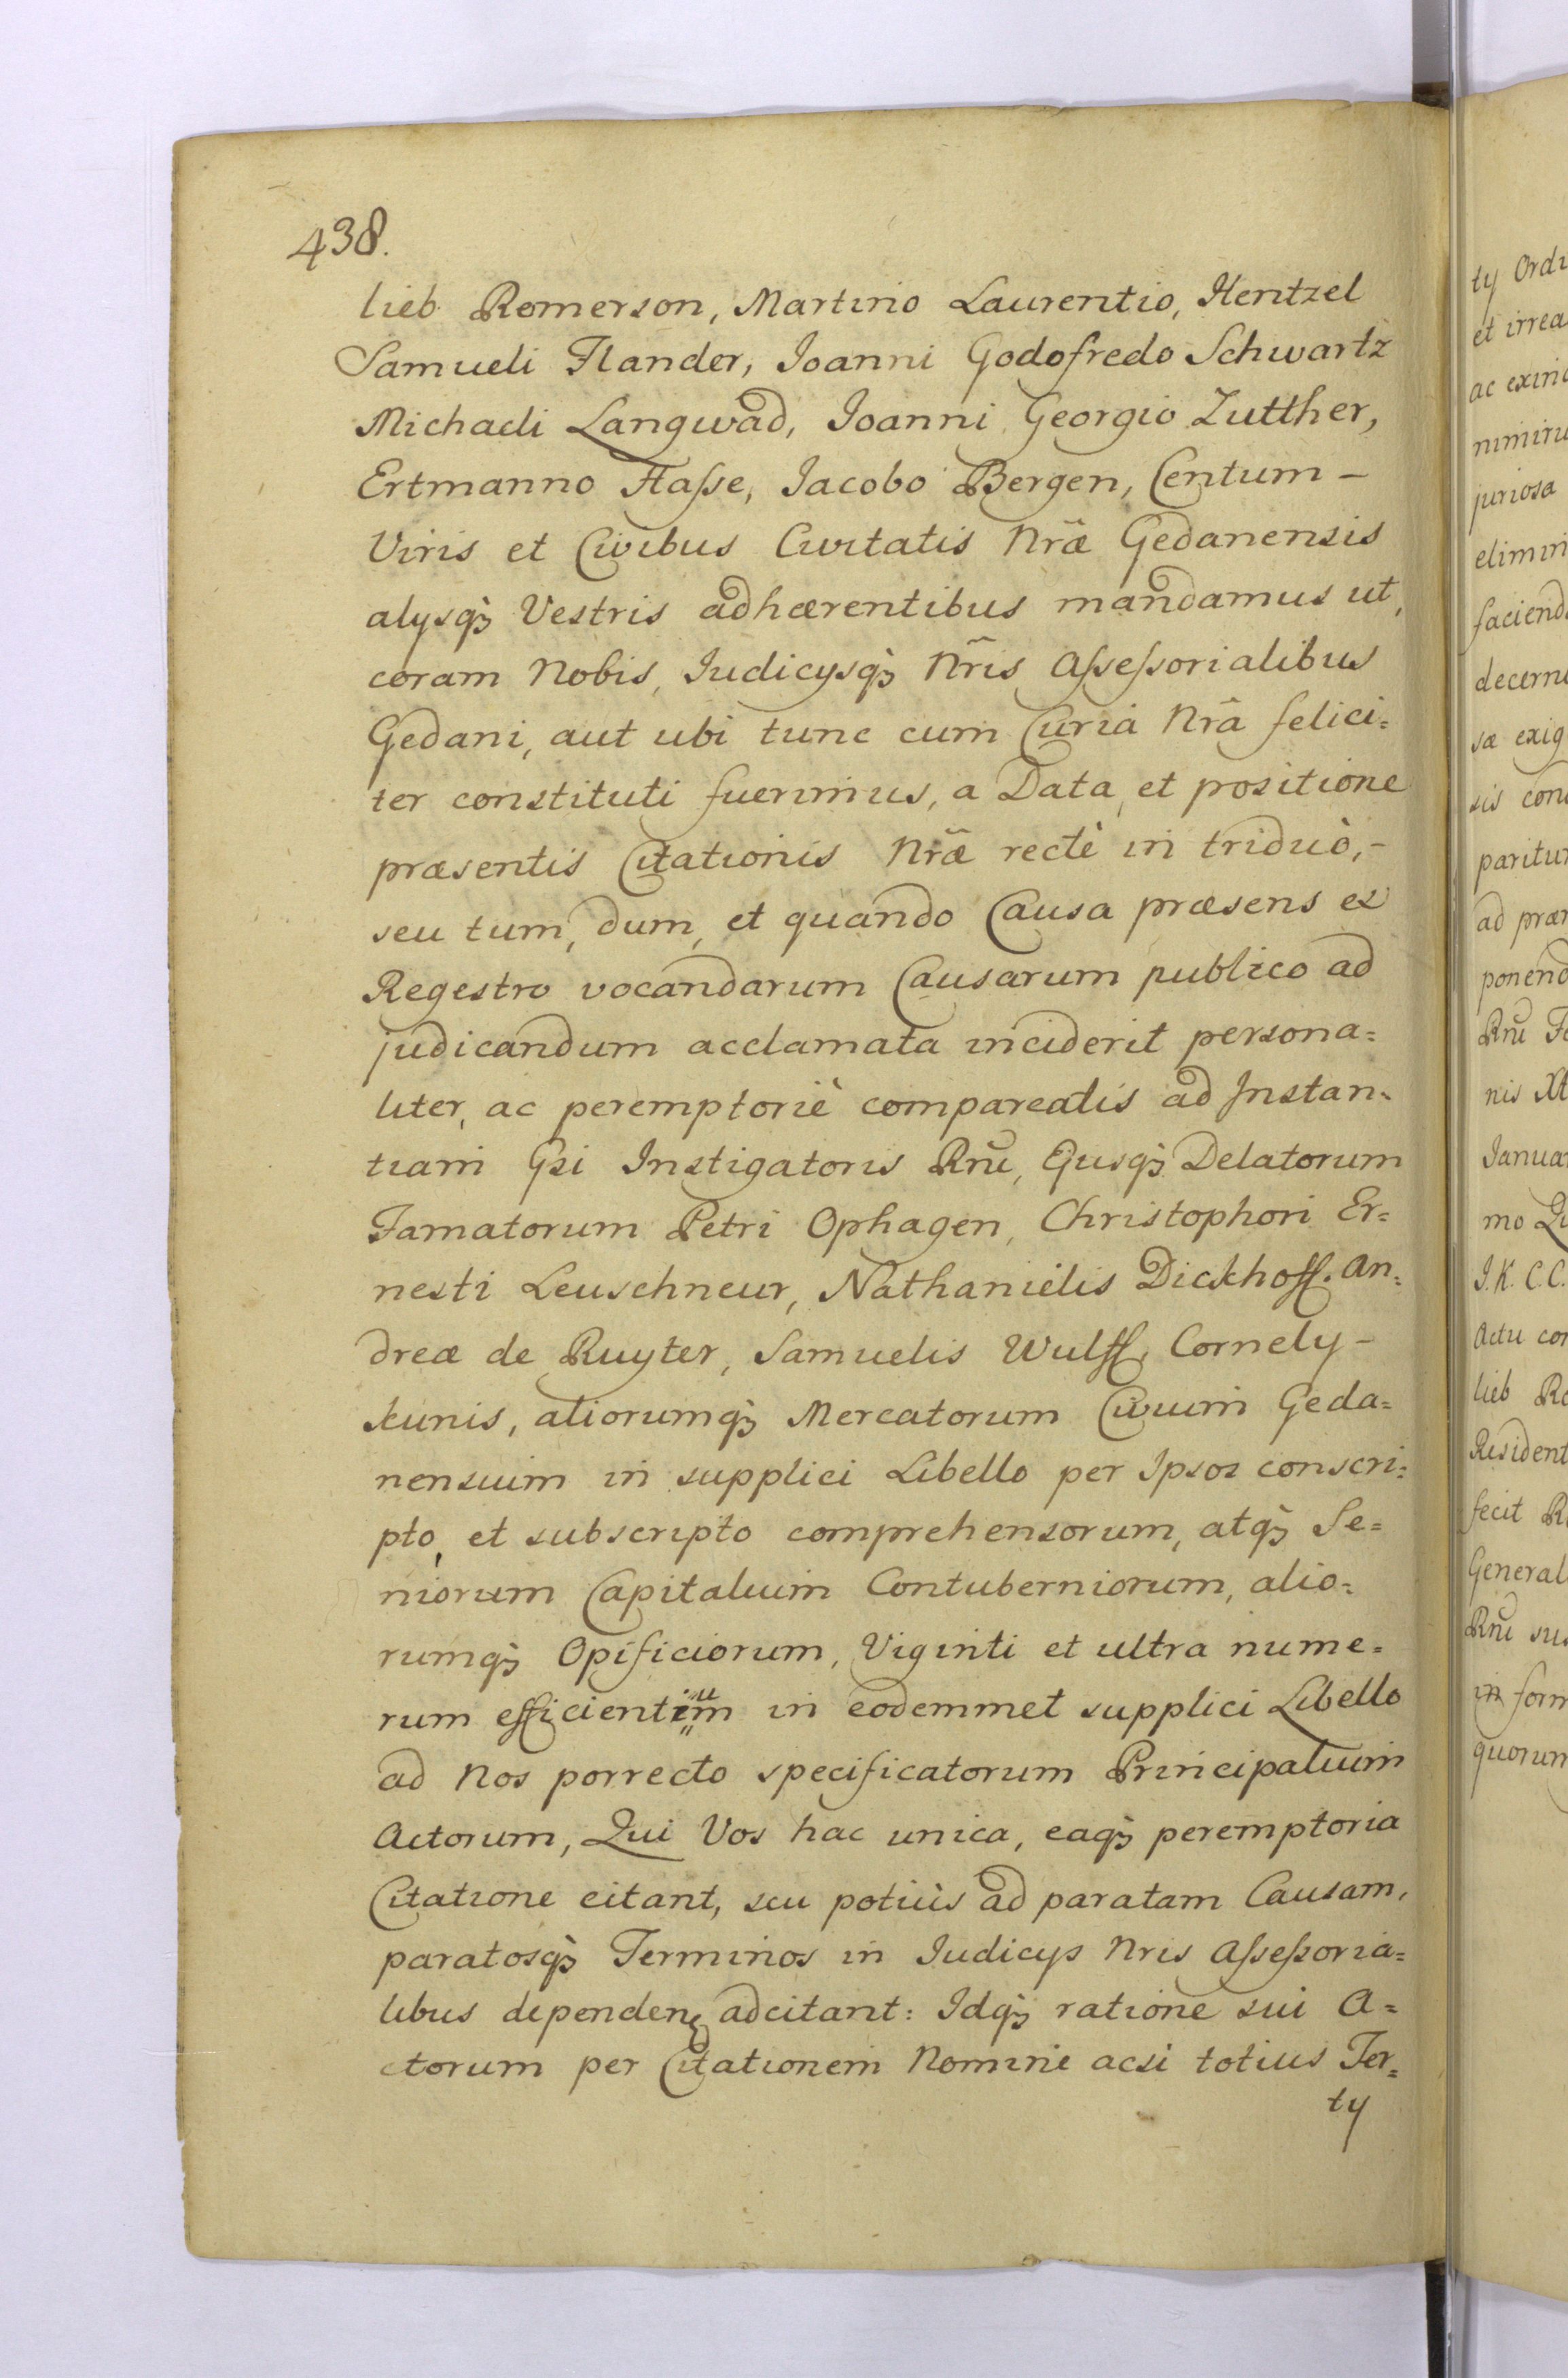 438.
lieb Romerson, Martino Laurentio, Hentzel
Samueli Flander, Ioanni Godofredo Schwartz
Michaeli Langwad, Ioanni Georgio Zutther,
Ertmanno Hasse, Iacobo Bergen, Centum –
Viris et Civibus Civitatis Nrã Gedanensis
alysqꝫ Vestris adhærentibus mandamus ut,
coram Nobis, Iudicysqꝫ Nr̃is Assessorialibus
Gedani, aut ubi tunc cum Curia Nrâ felici=
ter constituti fuerimus, a Data, et positione
præsentis Citationis Nræ̃ rectè in triduò, –
seu tum, dum, et quando Causa præsens ex
Regestro vocandarum Causarum publico ad
judicandum acclamata inciderit persona=
liter, ac peremptoriè compareatis ad Instan=
tiam Gsi Instigatoris Rnũ, Ejusqꝫ Delatorum
Famatorum Petri Ophagen, Christophori Er=
nesti Leuschneur, Nathanielis Dickhoff, An=
dreæ de Ruyter, Samuelis Wulff, Cornely –
kunis, aliorumqꝫ Mercatorum Civium Geda=
nensium in supplici Libello per Ipsos conscri=
pto, et subscripto comprehensorum, atqꝫ Se=
niorum Capitalium Contuberniorum, alio=
rumqꝫ Opificiorum, Viginti et ultra nume=
rum efficientium in eodemmet supplici Libello
ad Nos porrecto specificatorum Principalium
Actorum, Qui Vos hac unica, eaqꝫ peremptoria
Citatione citant, seu potiùs ad paratam Causam,
paratosqꝫ Terminos in Iudicys Nris Assessoria=
libus dependenꝫ adcitant: Idqꝫ ratione sui A=
ctorum per Citationem Nomine acsi totius Ter=
ty
ty Ordi
et irrea
ac exin
nimiru
juriosa
elimin
faciend
decern
sæ exig
sis con
paritur
ad præ
ponend
Rnũ
nis
Ianuar
mo
I. K. C. C.
Actu con
lieb Ro
Resident
fecit R
General
Rnũ sus
in form
quorum